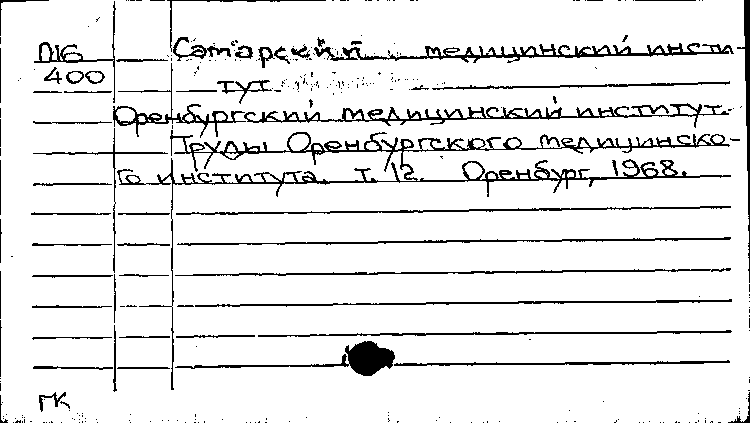 П16 Самарский медицинский инсти-
400 тут
Оренбургский медицинский институт.
Труды Оренбургского медицинско-
го института. т. 12. Оренбург, 1968.
ГК